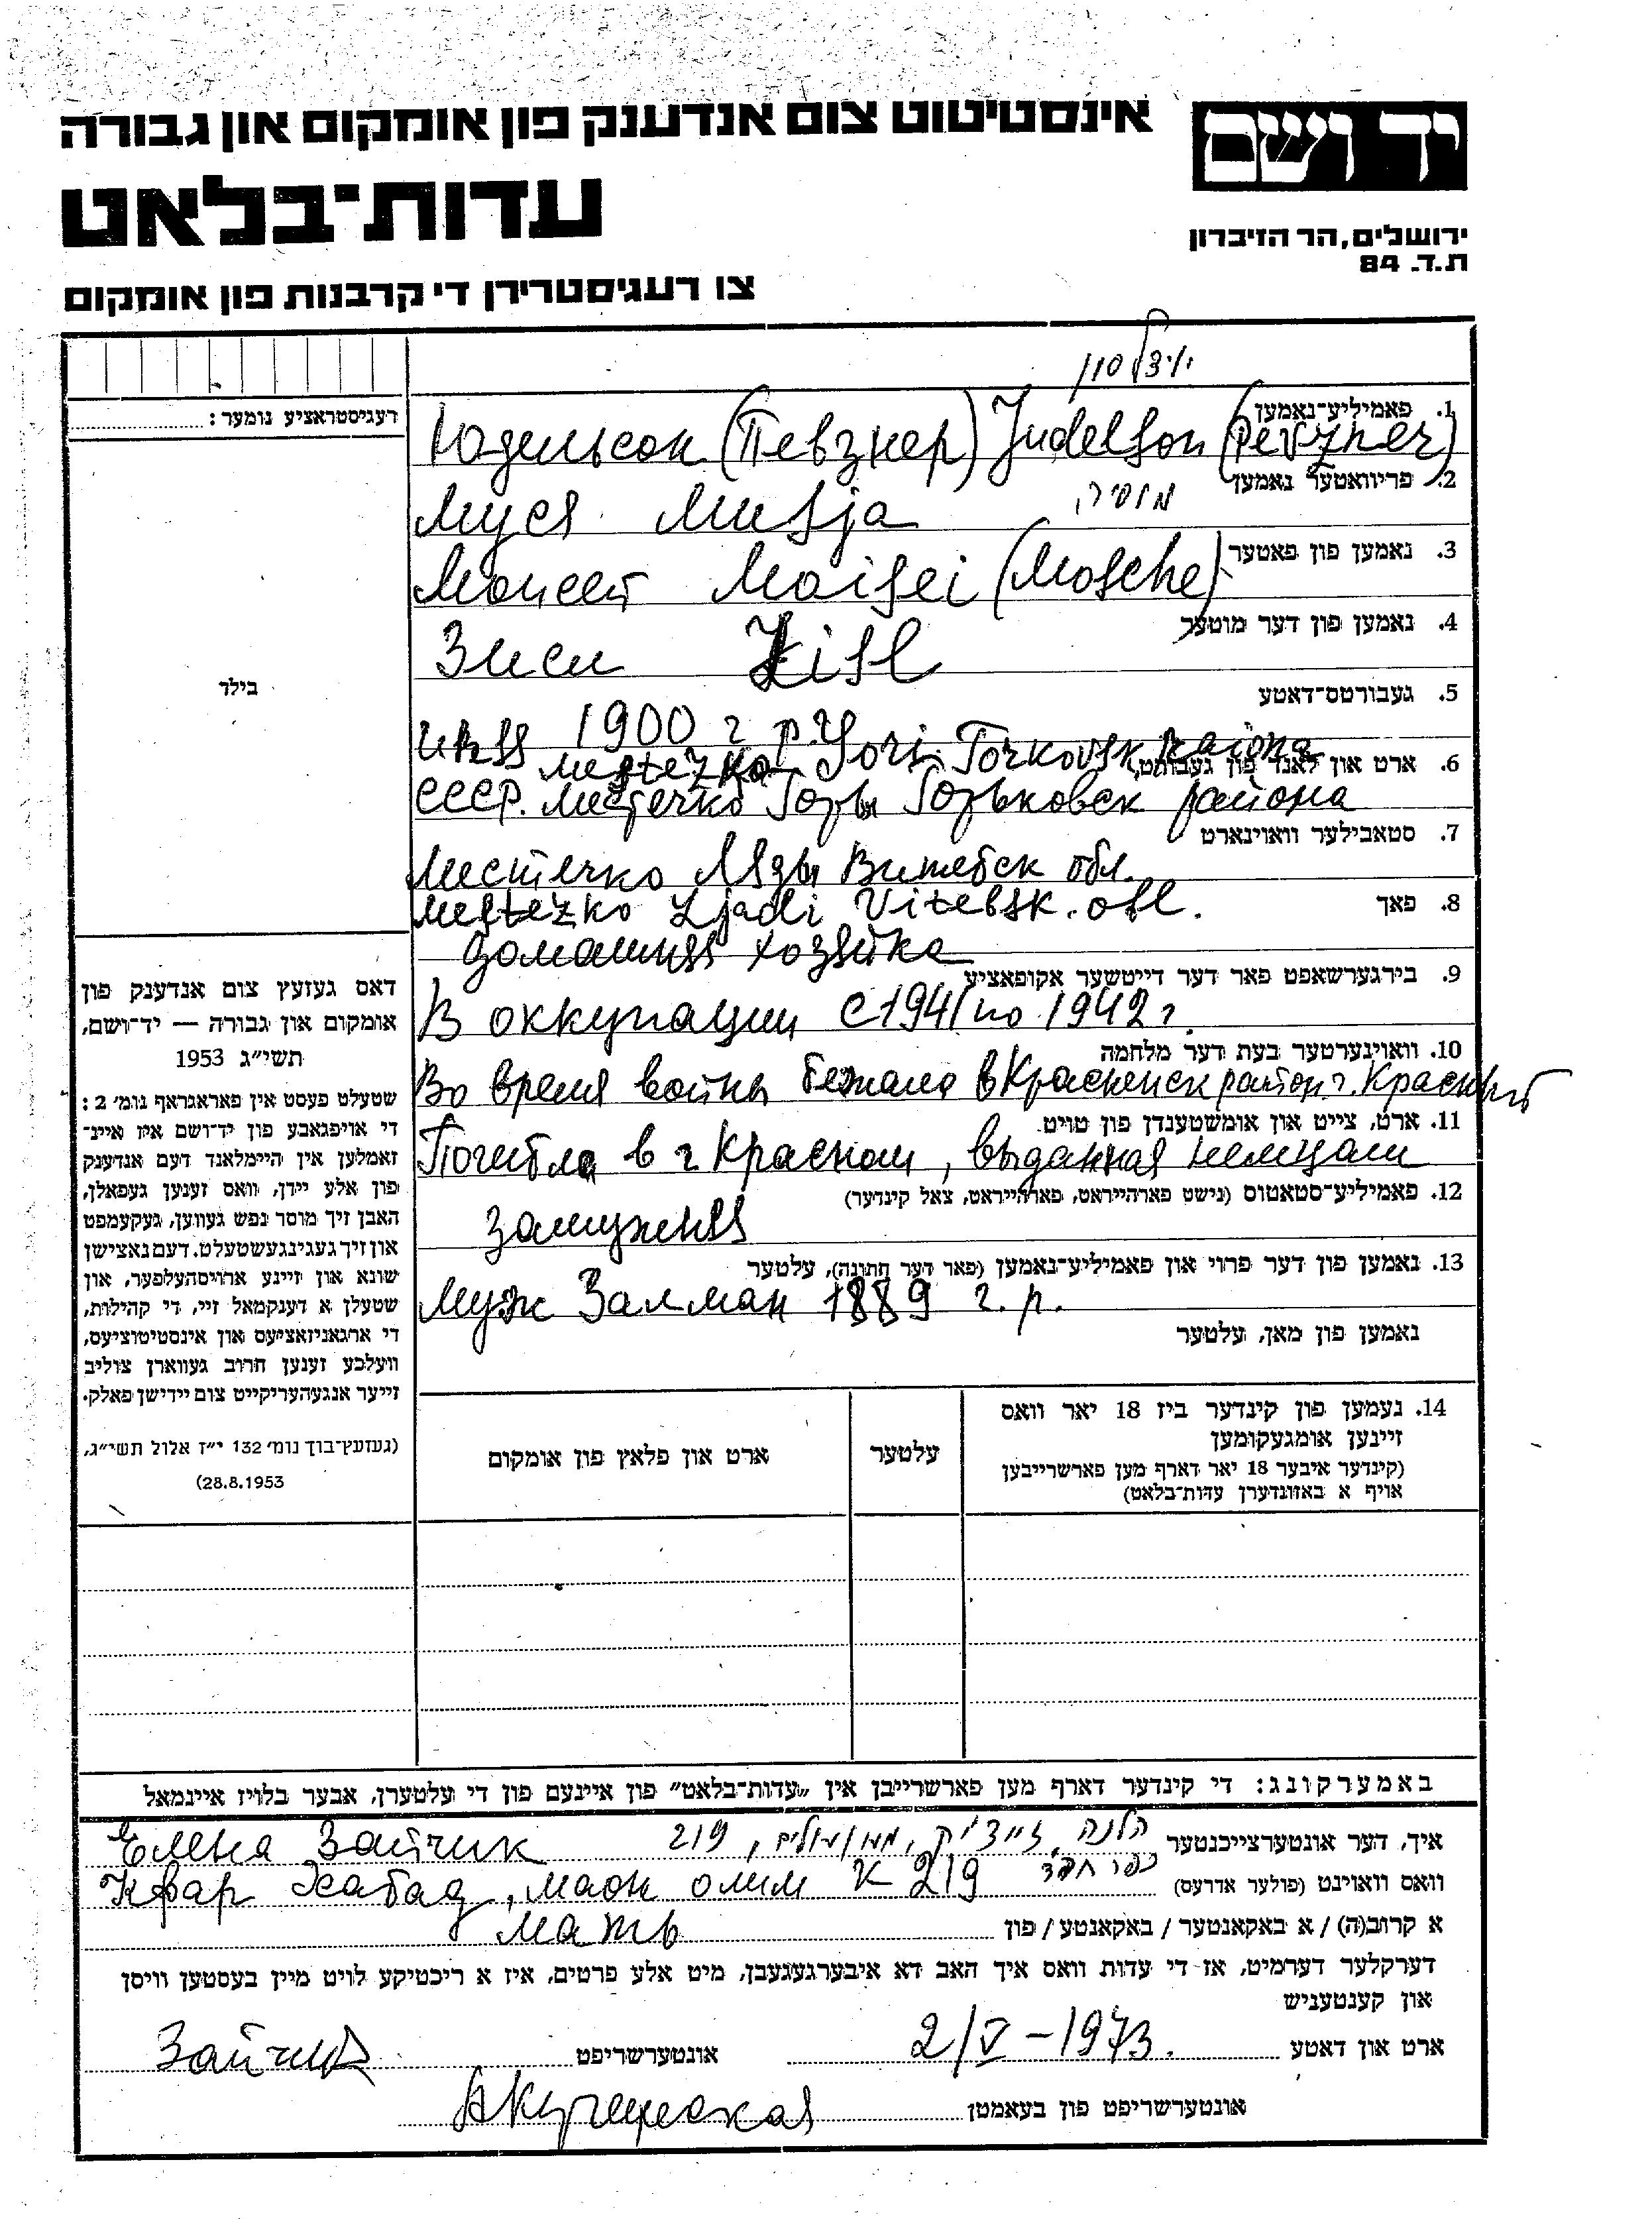 יד ושם
אינסטיטוט צום אנדענק פון אומקום און גבורה
עדות־בלאט
ירושלים, הר הזיכרון
ת.ד. 84
צו רעגיסטרירן די קרבנות פון אומקום
יודלסון
רעגיסטראציע נומער:
1. פאמיליע־נאמען
Юдельсон (Певзнер) Judelson (Pevzner)
2. פריוואטער נאמען
Муся Musja מוסיה
3. נאמען פון פאטער
Моисей Moisei (Mosche)
4. נאמען פון דער מוטער
Зиси Zisl
בילד
5. געבורטס־דאטע
1900 г р.
6. ארט און לאנד פון געבורט
Mestezko Gori Gorkovsk Raiona
СССР. Местечко Горы Горьковск района
7. סטאבילער וואוינארט
Местечко Ляды Витебск обл.
Mestezko Ljadi Vitebsk. obl.
8. פאך
домашняя хозяйка
9. בירגערשאפט פאר דער דייטשער אקופאציע
В оккупации с 1941 по 1942 г.
10. וואוינערטער בעת דער מלחמה
Во время войны бежала в Красненск район г. Красный
11. ארט, צייט און אומשטענדן פון טויט
Погибла в г Красном, выданная немцам
12. פאמיליע־סטאטוס (נישט פארהייראט, פארהייראט, צאל קינדער)
замужняя
13. נאמען פון דער פרוי און פאמיליע־נאמען (פאר דער חתונה), עלטער
Муж Залман 1889 г. р.
נאמען פון מאן, עלטער
דאס געזעץ צום אנדענק פון
אומקום און גבורה — יד־ושם,
תשי״ג 1953
שטעלט פעסט אין פאראגראף נומ׳ 2:
די אויפגאבע פון יד־ושם איז איינ־
זאמלען אין היימלאנד דעם אנדענק
פון אלע יידן, וואס זענען געפאלן,
האבן זיך מוסר נפש געווען, געקעמפט
און זיך געגינגעשטעלט. דעם נאצישן
שונא און זיינע ארויסהעלפער, און
שטעלן א דענקמאל זיי, די קהילות,
די ארגאניזאציעס און אינסטיטוציעס,
וועלכע זענען חרוב געווארן צוליב
זייער אנגעהעריקייט צום יידישן פאלק.
(געזעץ־בוך נומ׳ 132 י״ז אלול תשי״ג,
28.8.1953)
14. נעמען פון קינדער ביז 18 יאר וואס
זיינען אומגעקומען
(קינדער איבער 18 יאר דארף מען פארשרייבן
אויף א באזונדערן עדות־בלאט)
עלטער
ארט און פלאץ פון אומקום
באמערקונג: די קינדער דארף מען פארשרייבן אין „עדות־בלאט״ פון איינעם פון די עלטערן, אבער בלויז איינמאל
איך, דער אונטערצייכנטער הלנה זייצ׳יק, 219
Елена Зайчик
וואס וואוינט (פולער אדרעס) כפר חבד
Кфар Хабад, маон олим к 219
א קרוב(ה) / א באקאנטער / באקאנטע / פון мать
דערקלער דערמיט, אז די עדות וואס איך האב דא איבערגעגעבן, מיט אלע פרטים, איז א ריכטיקע לויט מיין בעסטען וויסן
און קענטעניש
ארט און דאטע 2/V-1973. אונטערשריפט Зайчик
אונטערשריפט פון בעאמטן